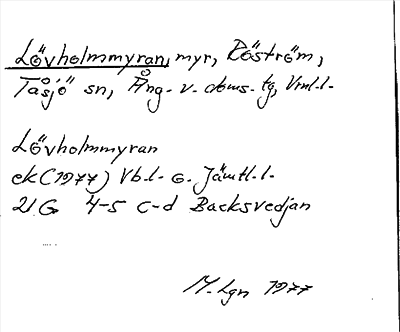 Lövholmmyran, myr, Röström,
Tåsjö sn, Ång. v. doms. tg, Vrnl.l.
Lövholmmyran
ek (1977) Vb.l. o. Jämtl.l.
21 G 4-5 c-d Backsvedjan
M. Lgn 1977